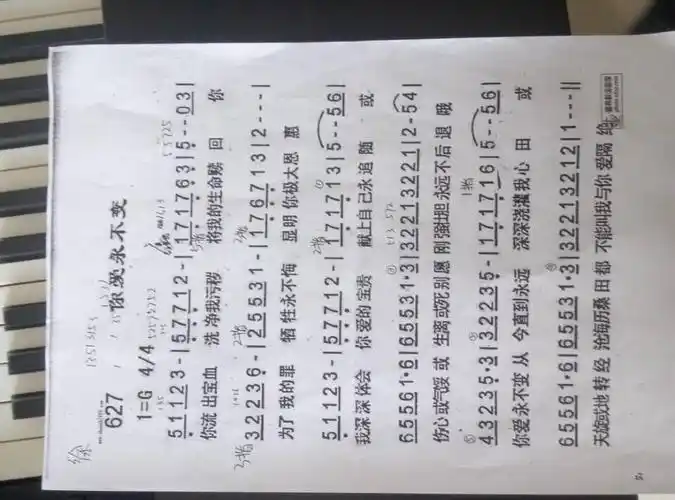 徐
627 你爱永不变
1=G 4/4
5 1 1 2 3 - | 5 7 7 1 2 - | 1 7 1 7 6 3 | 5 - - 0 3 |
你流 出宝血 洗 净我污秽 将我的生命赎 回 你
3 2 2 3 6 - | 2 5 5 3 1 - | 1 7 6 7 1 3 | 2 - - - |
为了 我的罪 牺 牲永不悔 显明 你极大恩 惠
5 1 1 2 3 - | 5 7 7 1 2 - | 1 7 1 7 1 3 | 5 - - 5 6 |
我深 深体会 你 爱的宝贵 献上自己永 追 随 或
6 5 5 6 1 · 6 | 6 5 5 3 1 · 3 | 3 2 2 1 3 2 2 1 | 2 - 5 4 |
伤心 或气馁 或 生离 或死别 愿 刚强壮胆 永远不后 退 哦
4 3 2 3 5 · 3 | 3 2 2 3 5 - | 1 7 1 7 1 6 | 5 - - 5 6 |
你爱 永不变 从 今直 到永远 深深浇灌我 心 田 或
6 5 5 6 1 · 6 | 6 5 5 3 1 · 3 | 3 2 2 1 3 2 1 2 | 1 - - - ||
天旋 或地转 经 沧海 历桑田 都 不能叫我与你 爱隔 绝